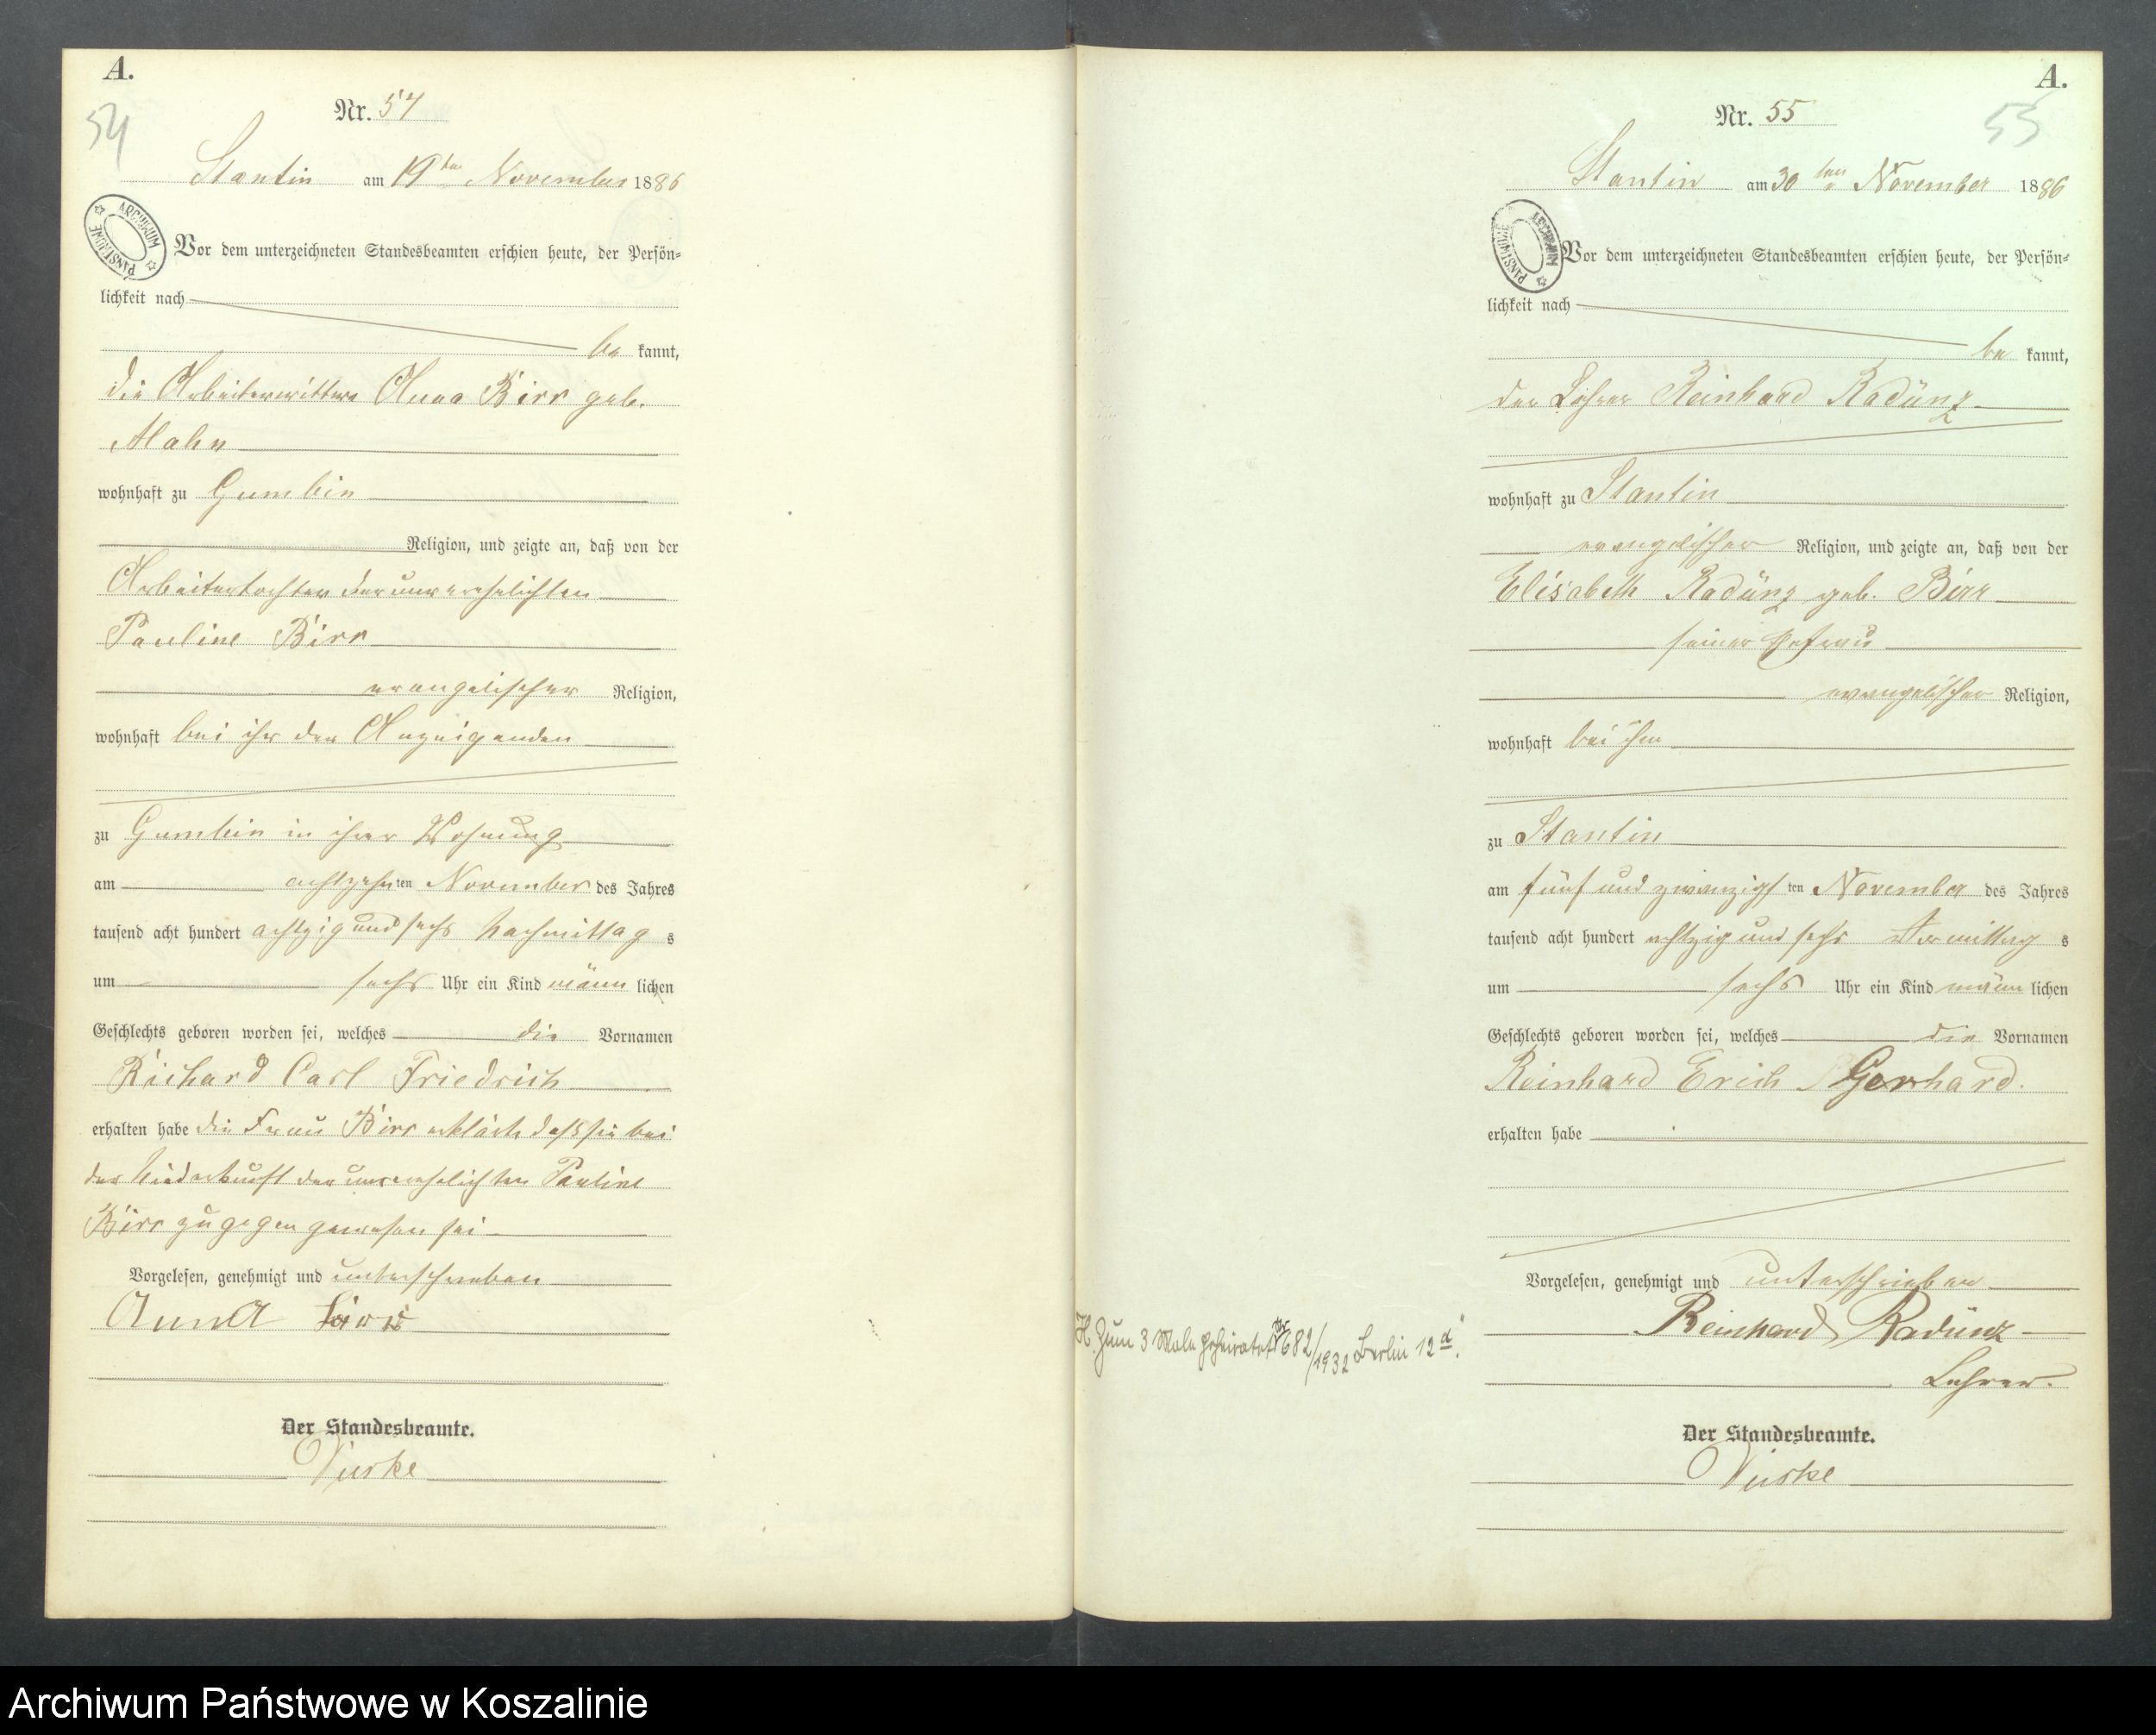 A.
54
Nr. 54
Stantin am 19ten November 1886
ARCHIWUM PAŃSTWOWE
Vor dem unterzeichneten Standesbeamten erschien heute, der Persön-
lichkeit nach
be kannt,
die Arbeiterwittwe Anna Birr geb.
Mahn
wohnhaft zu Gumbin
Religion, und zeigte an, daß von der
Arbeitertochter der unverehelichten
Pauline Birr
evangelischer Religion,
wohnhaft bei ihr der Anzeigenden
zu Gumbin in ihrer Wohnung
am achtzehnten November des Jahres
tausend acht hundert achtzig und sechs Nachmittags
um sechs Uhr ein Kind männlichen
Geschlechts geboren worden sei, welches die Vornamen
Richard Carl Friedrich
erhalten habe die Frau Birr erklärte daß sie bei
der Niederkunft der unverehelichten Pauline
Birr zugegen gewesen sei
Vorgelesen, genehmigt und unterschrieben
Anna Birr
Der Standesbeamte.
A.
55
Nr. 55
Stantin am 30ten November 1886
ARCHIWUM PAŃSTWOWE
Vor dem unterzeichneten Standesbeamten erschien heute, der Persön-
lichkeit nach
be kannt,
der Lehrer Reinhard Radünz
wohnhaft zu Stantin
evangelischer Religion, und zeigte an, daß von der
Elisabeth Radünz geb. Birr
seiner Ehefrau
evangelischer Religion,
wohnhaft bei ihm
zu Stantin
am fünf und zwanzigsten November des Jahres
tausend acht hundert achtzig und sechs Vormittags
um sechs Uhr ein Kind männlichen
Geschlechts geboren worden sei, welches die Vornamen
Reinhard Erich Gerhard.
erhalten habe
Vorgelesen, genehmigt und unterschrieben
Reinhard Radünz
Lehrer.
Der Standesbeamte.
Zum 3 Male geheiratet Nr 682/1932 Berlin 12a.
Archiwum Państwowe w Koszalinie